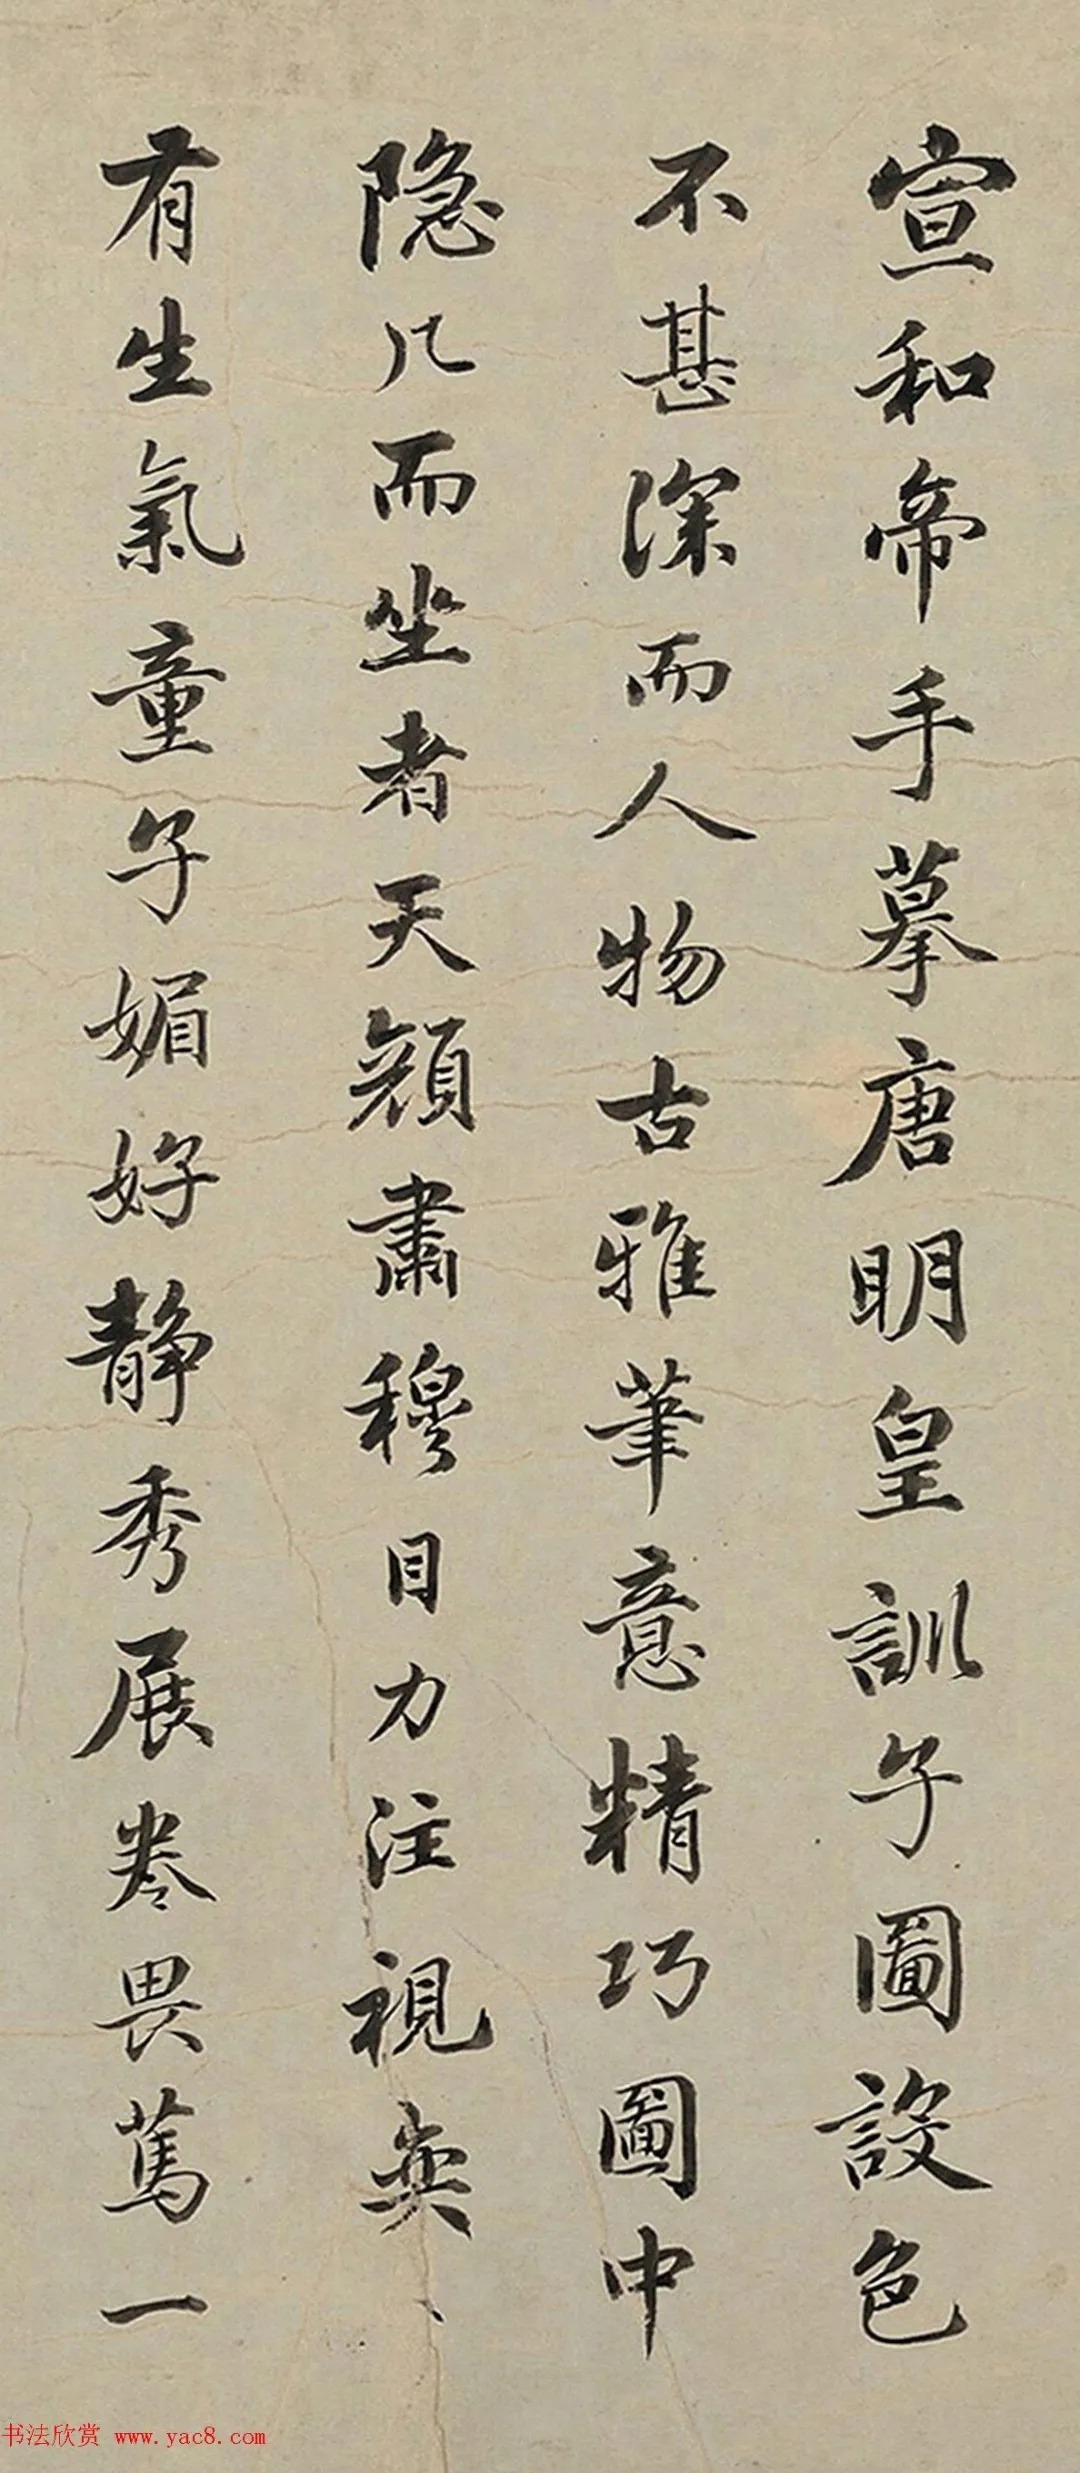 宣和帝手摹唐明皇訓子圖設色
不甚深而人物古雅筆意精巧圖中
隐几而坐者天顏肅穆目力注視奕〻
有生氣童子媚好静秀展卷畏篤一
书法欣赏 www.yac8.com